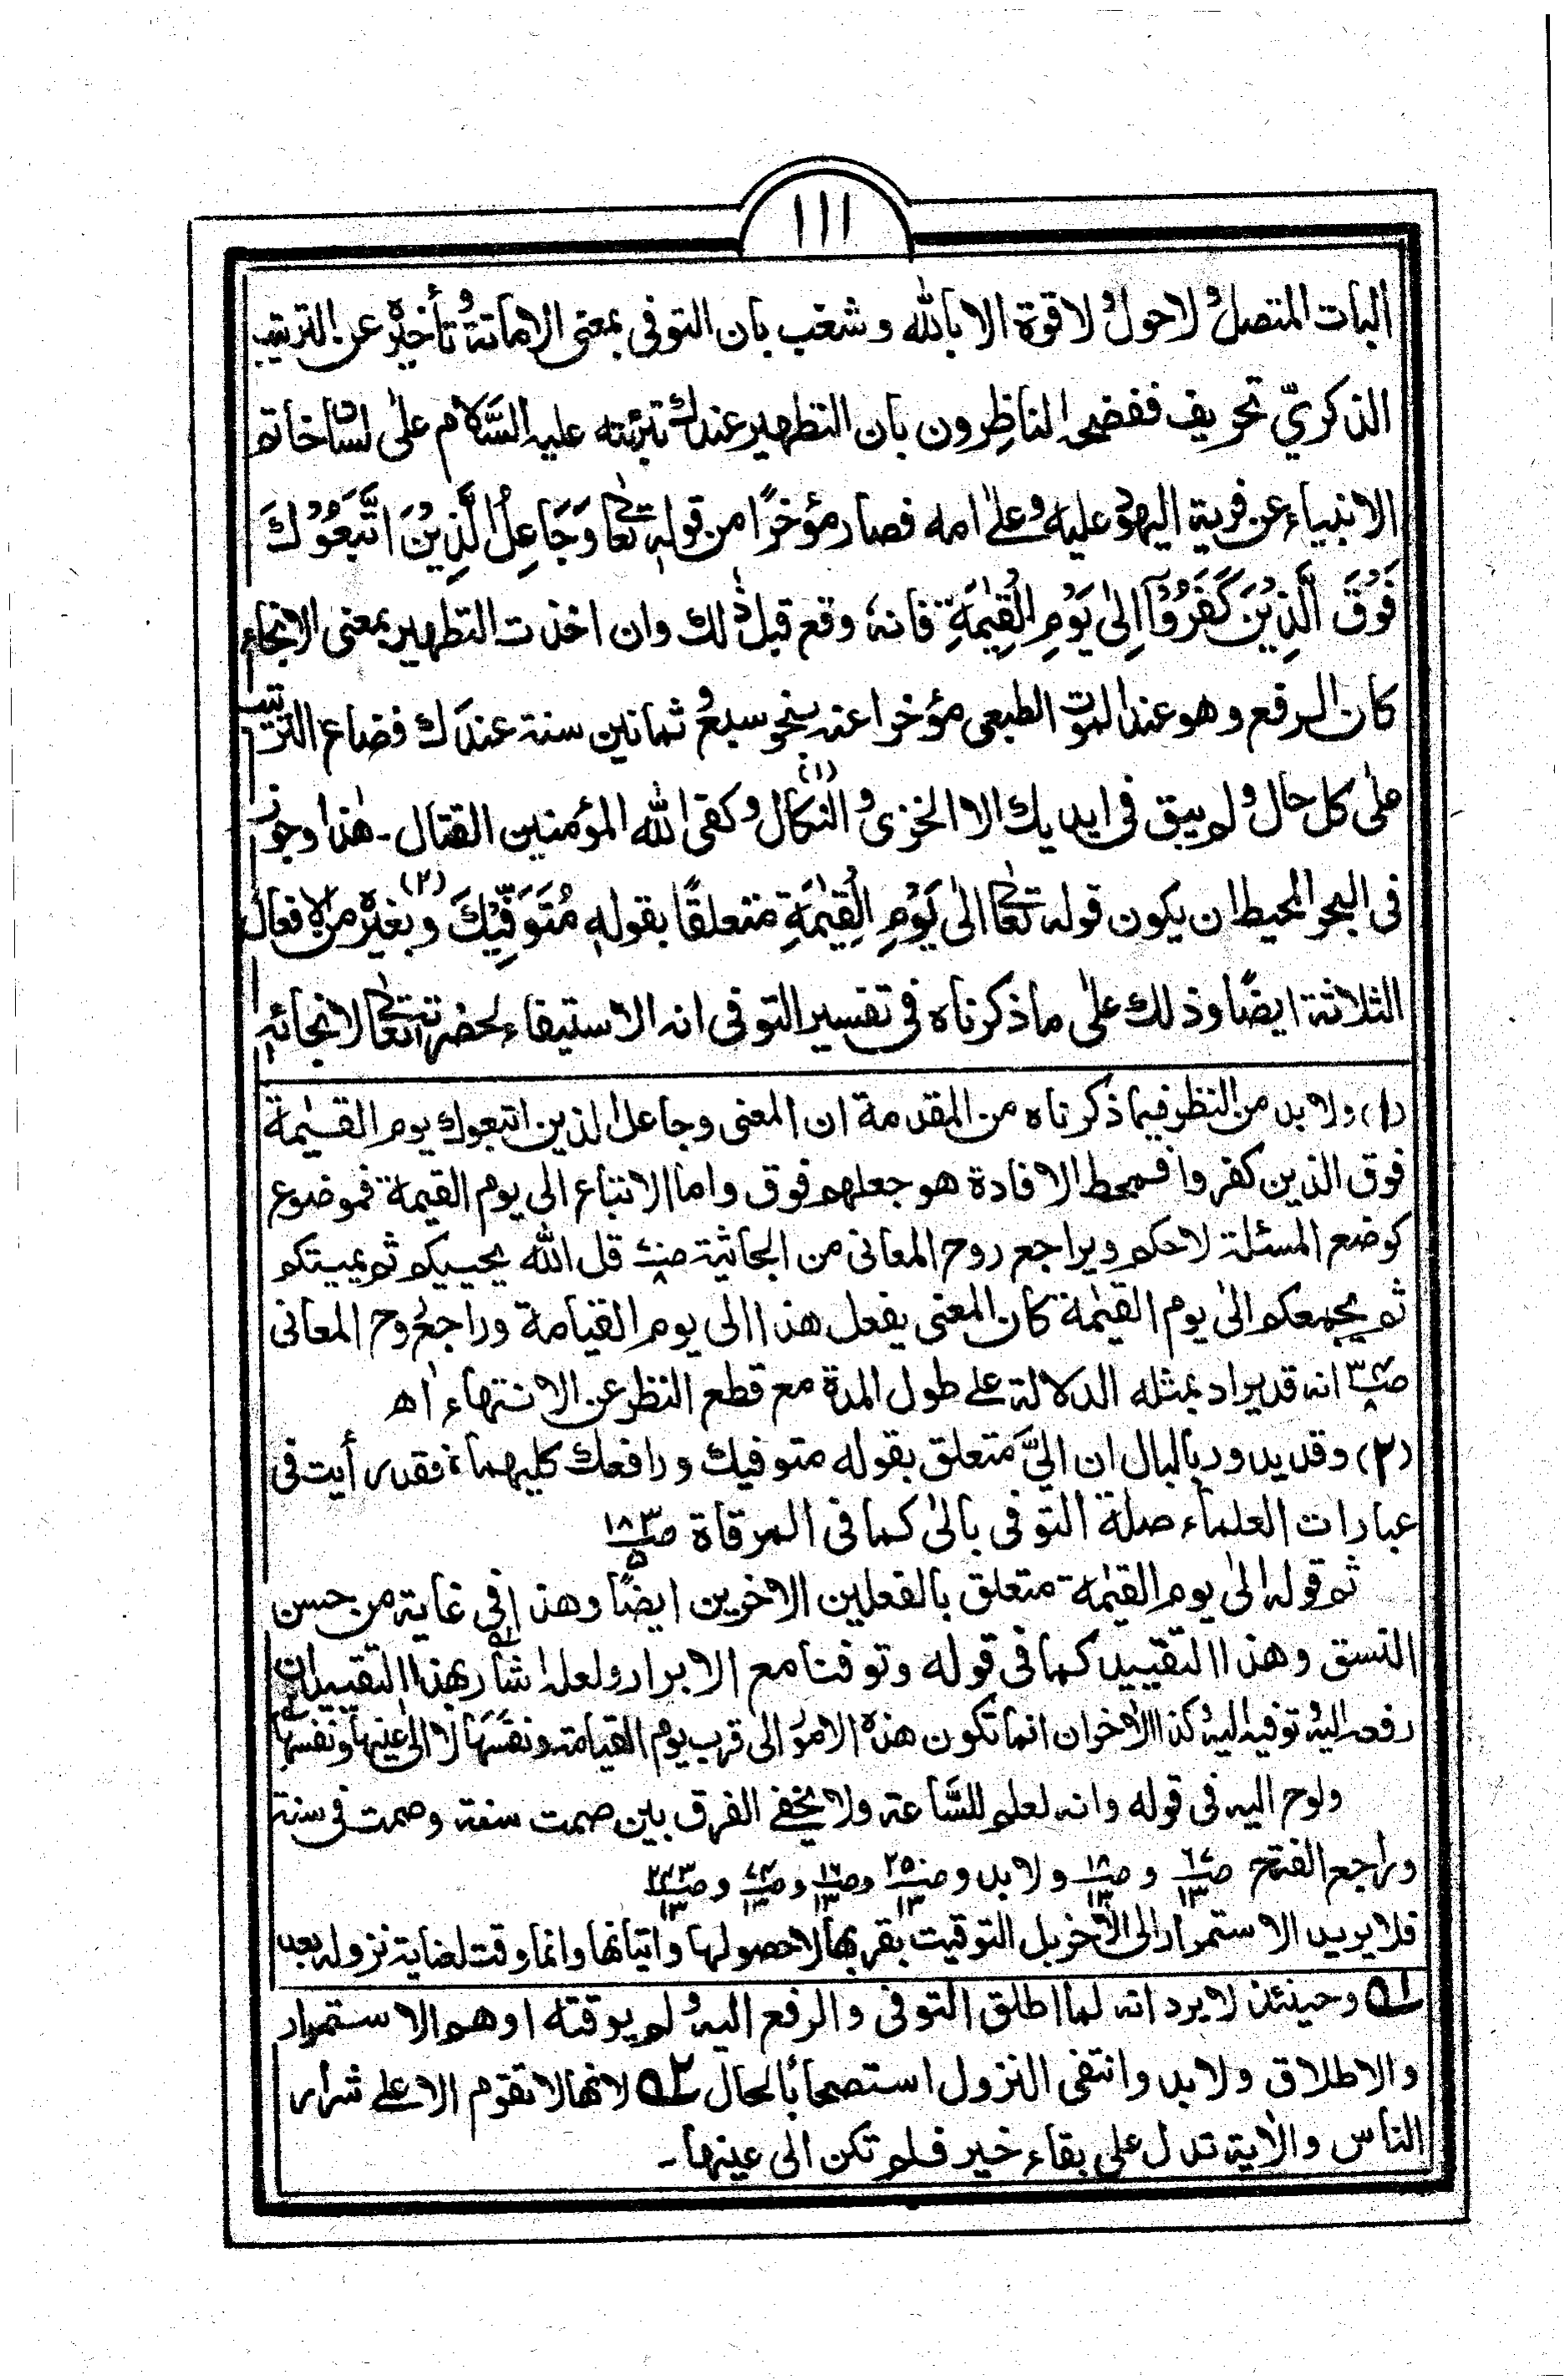 ١١١
البات المتصل ولا حول ولا قوة الا بالله وشغب بان التوفى بمعنى الاماتة وتأخيره عن الترتيب
الذكرىّ تحريف ففضحه الناظرون بان التطهير عندك تبرئته عليه السَّلام على لسان خاتم
الانبياء عن فرية اليهود عليه وعلىٰ امه فصار مؤخرًا من قوله تعالىٰ وَجَاعِلُ الَّذِيْنَ اتَّبَعُوْكَ
فَوْقَ الَّذِيْنَ كَفَرُوْٓا اِلىٰ يَوْمِ الْقِيٰمَةِ فانهٗ وقع قبل ذٰلك وان اخذت التطهير بمعنى الانجاء
كان الرفع وهو عند الموت الطبعى مؤخرا عنه بنحو سبع وثمانين سنة عندك فضاع الترتيب
علىٰ كل حال ولم يبق فى ايديك الا الخزى والنكال (١) وكفى الله المؤمنين القتال ـ هٰذا وجوز
فى البحر المحيط ان يكون قوله تعالىٰ الىٰ يَوْمِ الْقِيٰمَةِ متعلقًا بقوله مُتَوَفِّيْكَ (٢) وبغيره من الافعال
الثلاثة ايضًا وذلك علىٰ ما ذكرناه فى تفسير التوفى انه الاستيفاء لحضرته تعالىٰ لا نجائه
(١) ولا بد من النظر فيما ذكرناه من المقدمة ان المعنى وجاعل الذين اتبعوك يوم القيٰمة
فوق الذين كفروا فمحط الافادة هو جعلهم فوق واما الاتباع الى يوم القيمة فموضوع
كوضع المسئلة لاحكم ويراجع روح المعانى من الجاثية قل الله يحييكم ثم يميتكم
ثم يجمعكم الىٰ يوم القيٰمة كان المعنى يفعل هذا الى يوم القيامة وراجع روح المعانى
انه قد يراد بمثله الدلالة على طول المدة مع قطع النظر عن الانتهاء اه
(٢) وقد يدور بالبال ان اليَّ متعلق بقوله متوفيك ورافعك كليهما، فقد رأيت فى
عبارات العلماء صلة التوفى بالىٰ كما فى المرقاة صـ١٨٣/٥
ثم قوله الىٰ يوم القيٰمة متعلق بالفعلين الاخرين ايضًا وهذا فى غاية من حسن
النسق وهذا التقييد كما فى قوله وتوفنا مع الابرار ولعله اشار بهذا التقييد ان
رفعه اليه وتوفيه اليه كذا الاخران انما تكون هذه الامور الى قرب يوم القيامة ونفسها لا الى عينها ونفسها
ولوح اليه فى قوله وانه لعلم للسَّاعة ولا يخفى الفرق بين صمت سنة وصمت فى سنة
وراجع الفتح صـ /١٣ و صـ١٨/١٣ ولا بد و صـ٢٥٠/١٣ وصـ١٦/١٣ و و
فلا يريد الاستمرار الى الاٰخر بل التوقيت بقربها لا حصولها واتيانها وانما وقت لغاية نزوله بعد
١ــه وحينئذ لا يرد انه لما اطلق التوفى والرفع اليه ولم يوقته اوهم الاستمرار
والاطلاق ولا بد وانتفى النزول استصحابًا بالحال ٢ــه لانها لا تقوم الا على شرار
الناس والاٰية تدل على بقاء خير فلم تكن الى عينها ـ